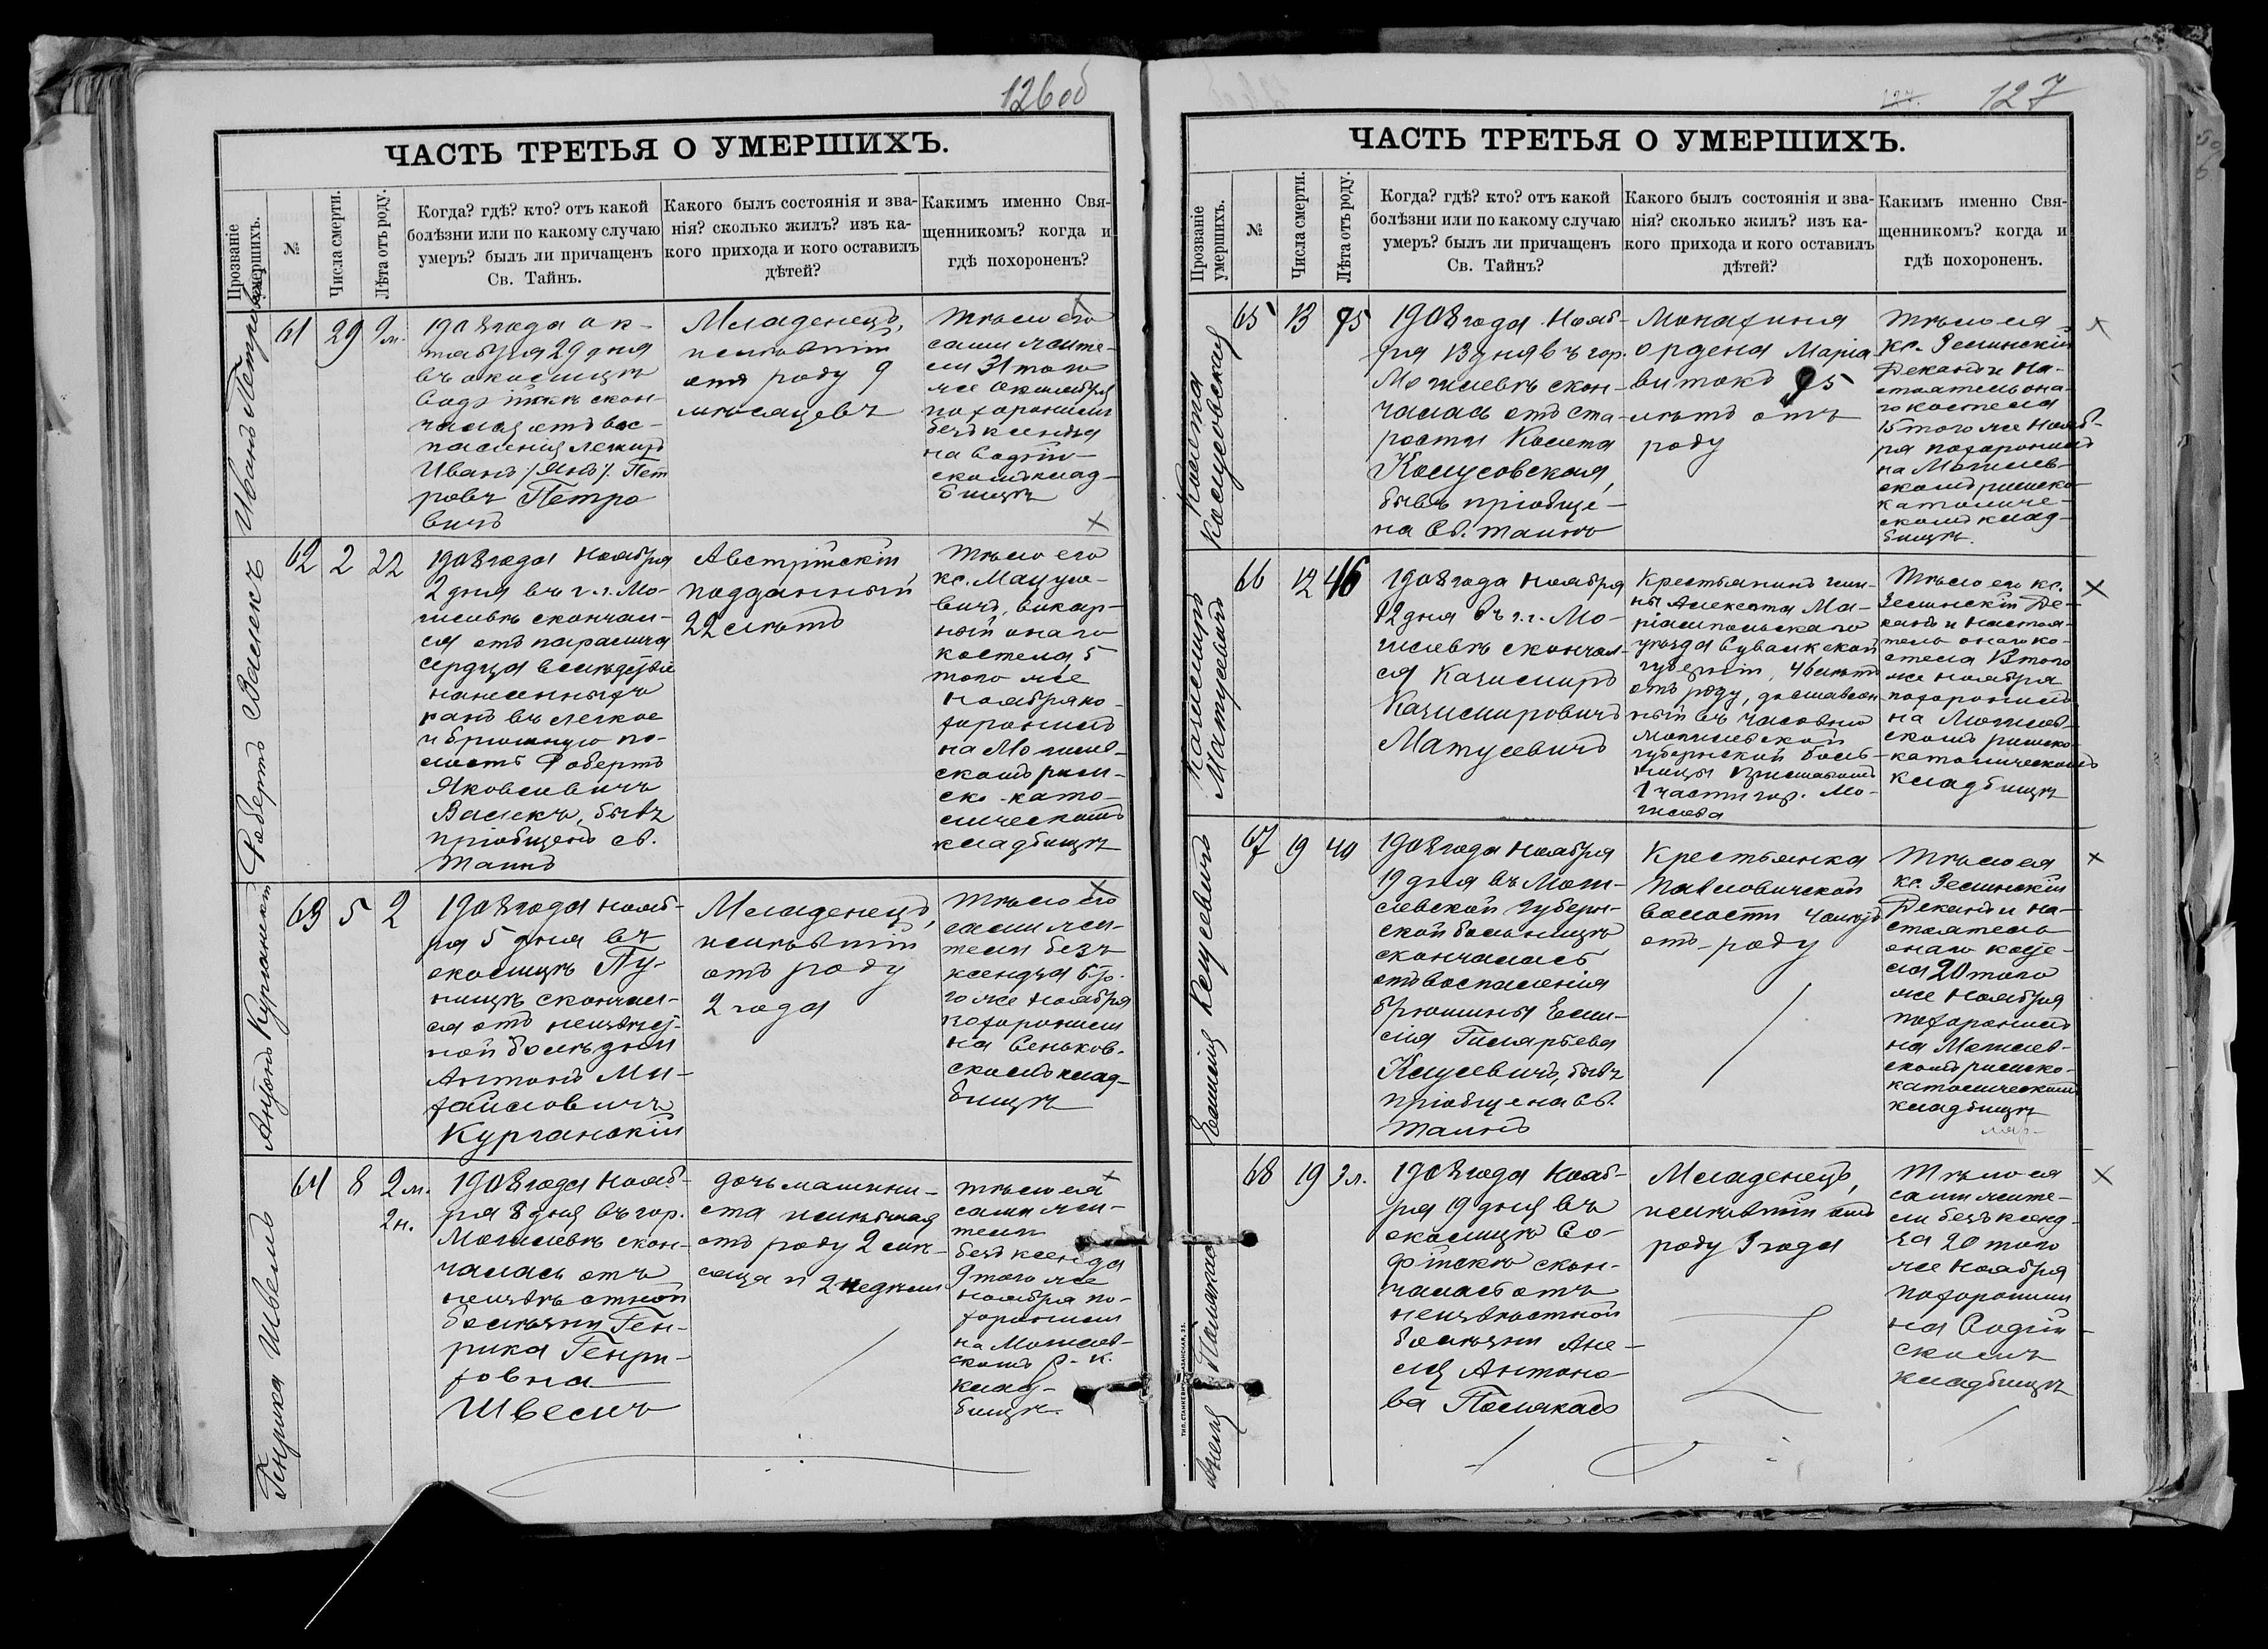 126 об
ЧАСТЬ ТРЕТЬЯ О УМЕРШИХЪ.
Прозваніе умершихъ.
№
Числа смерти.
Лѣта отъ роду.
Когда? гдѣ? кто? отъ какой
болѣзни или по какому случаю
умеръ? былъ ли причащенъ
Св. Тайнъ.
Какого былъ состоянія и зва-
нія? сколько жилъ? изъ ка-
кого прихода и кого оставилъ
дѣтей?
Какимъ именно Свя-
щенникомъ? когда и
гдѣ похороненъ?
Иванъ Петровичъ
61
29
9 м.
1908 года ок-
тября 29 дня
въ околицѣ
скон-
чался отъ вос-
паленія легкихъ
Иванъ /Янъ/ Пет
ровъ Петро
вичъ
Младенецъ,
имѣвшій
отъ роду 9
мѣсяцевъ
Тѣло его
сами жите-
ли 31 того
же октября
похоронили
безъ ксендза
на
скомъ клад-
бищѣ
Робертъ Валекъ
62
2
22
1908 года Ноября
2 дня въ г. г. Мо-
гилевѣ скончал-
ся отъ паралича
сердца вслѣдствіе
нанесенныхъ
ранъ въ легкое
и брюшную по-
лость Робертъ
Яковлевичъ
Валекъ, бывъ
пріобщенъ св.
Таинъ
Австрійскій
подданный
22 лѣтъ
Тѣло его
кс. Мацуле-
вичъ, викар-
ный онаго
костела 5
того же
Ноября по-
хоронилъ
на Могилев-
скомъ рим-
ско-като-
лическомъ
кладбищѣ
Антонъ Курганскій
63
5
2
1908 года Нояб-
ря 5 дня въ
околицѣ Пу-
скончал-
ся отъ неизвѣст-
ной болѣзни
Антонъ Ми-
хайловичъ
Курганскій
Младенецъ,
имѣвшій
отъ роду
2 года
Тѣло его
сами жи-
тели безъ
ксендза 6
го же Ноября
похоронили
на Сеньков-
скомъ клад-
бищѣ
Генрика Швель
64
8
2 м.
2 н.
1908 года Нояб-
ря 8 дня въ гор.
Могилевѣ скон-
чалась отъ
неизвѣстной
болѣзни Ген-
рика Генри-
ховна
Швель
дочь машини-
ста имѣвшая
отъ роду 2 мѣ-
сяца и 2 недѣли
Тѣло ея
сами жи-
тели
безъ ксендза
9 того же
Ноября по-
хоронили
на Могилев-
скомъ р.-к.
клад-
бищѣ.
127
ЧАСТЬ ТРЕТЬЯ О УМЕРШИХЪ.
Прозваніе умершихъ.
№
Числа смерти.
Лѣта отъ роду.
Когда? гдѣ? кто? отъ какой
болѣзни или по какому случаю
умеръ? былъ ли причащенъ
Св. Тайнъ?
Какого былъ состоянія и зва-
нія? сколько жилъ? изъ ка-
кого прихода и кого оставилъ
дѣтей?
Какимъ именно Свя-
щенникомъ? когда и
гдѣ похороненъ.
65
13
75
1908 года Нояб-
ря 13 дня въ гор.
Могилевѣ скон-
чалась отъ ста-
рости Колета
бывъ пріобще-
на Св. Таинъ
Монахиня
ордена Маріа-
витокъ 75
лѣтъ отъ
роду
Тѣло ея
кс. Зелинскій
Деканъ и На-
стоятель она-
го костела
15 того же Нояб-
ря похоронилъ
на Могилев-
скомъ римско-
католиче-
скомъ клад-
бищѣ.
Казимиръ Матусевичъ
66
12
46
1908 года Ноября
12 дня въ г. г. Мо-
гилевѣ скончал-
ся Казимиръ
Казимировичъ
Матусевичъ
Крестьянинъ гми-
ны Алексота Ма-
ріампольскаго
уѣзда Сувалкской
губерніи, 46 лѣтъ
отъ роду, доставлен
ный въ часовню
Могилевской
губернской боль-
ницы приставомъ
1 части гор. Мо-
гилева
Тѣло его кс.
Зелинскій Де-
канъ и Настоя-
тель онаго ко-
стела 13 того
же Ноября
похоронилъ
на Могилев-
скомъ римско-
католическомъ
кладбищѣ
67
19
40
1908 года Ноября
19 дня въ Моги-
левской Губерн-
ской больницѣ
скончалась
отъ воспаленія
брюшины Еми-
лія Гиларьева
бывъ
пріобщена Св.
Таинъ
Крестьянка
Павловичской
волости 40 лѣтъ
отъ роду
Тѣло ея
кс. Зелинскій
Деканъ и На-
стоятель
онаго косте-
ла 20 того
же Ноября
похоронилъ
на Могилев-
скомъ римско-
католическомъ
кладбищѣ
Анеля Полякасъ
68
19
3 л.
1908 года Нояб-
ря 19 дня въ
околицѣ Со-
фійскѣ скон-
чалась отъ
неизвѣстной
болѣзни Ане-
ля Антоно-
ва Полякасъ
Младенецъ,
имѣвшій отъ
роду 3 года
Тѣло ея
сами жите-
ли безъ ксенд-
за 20 того
же Ноября
похоронили
на Софій-
скомъ
кладбищѣ